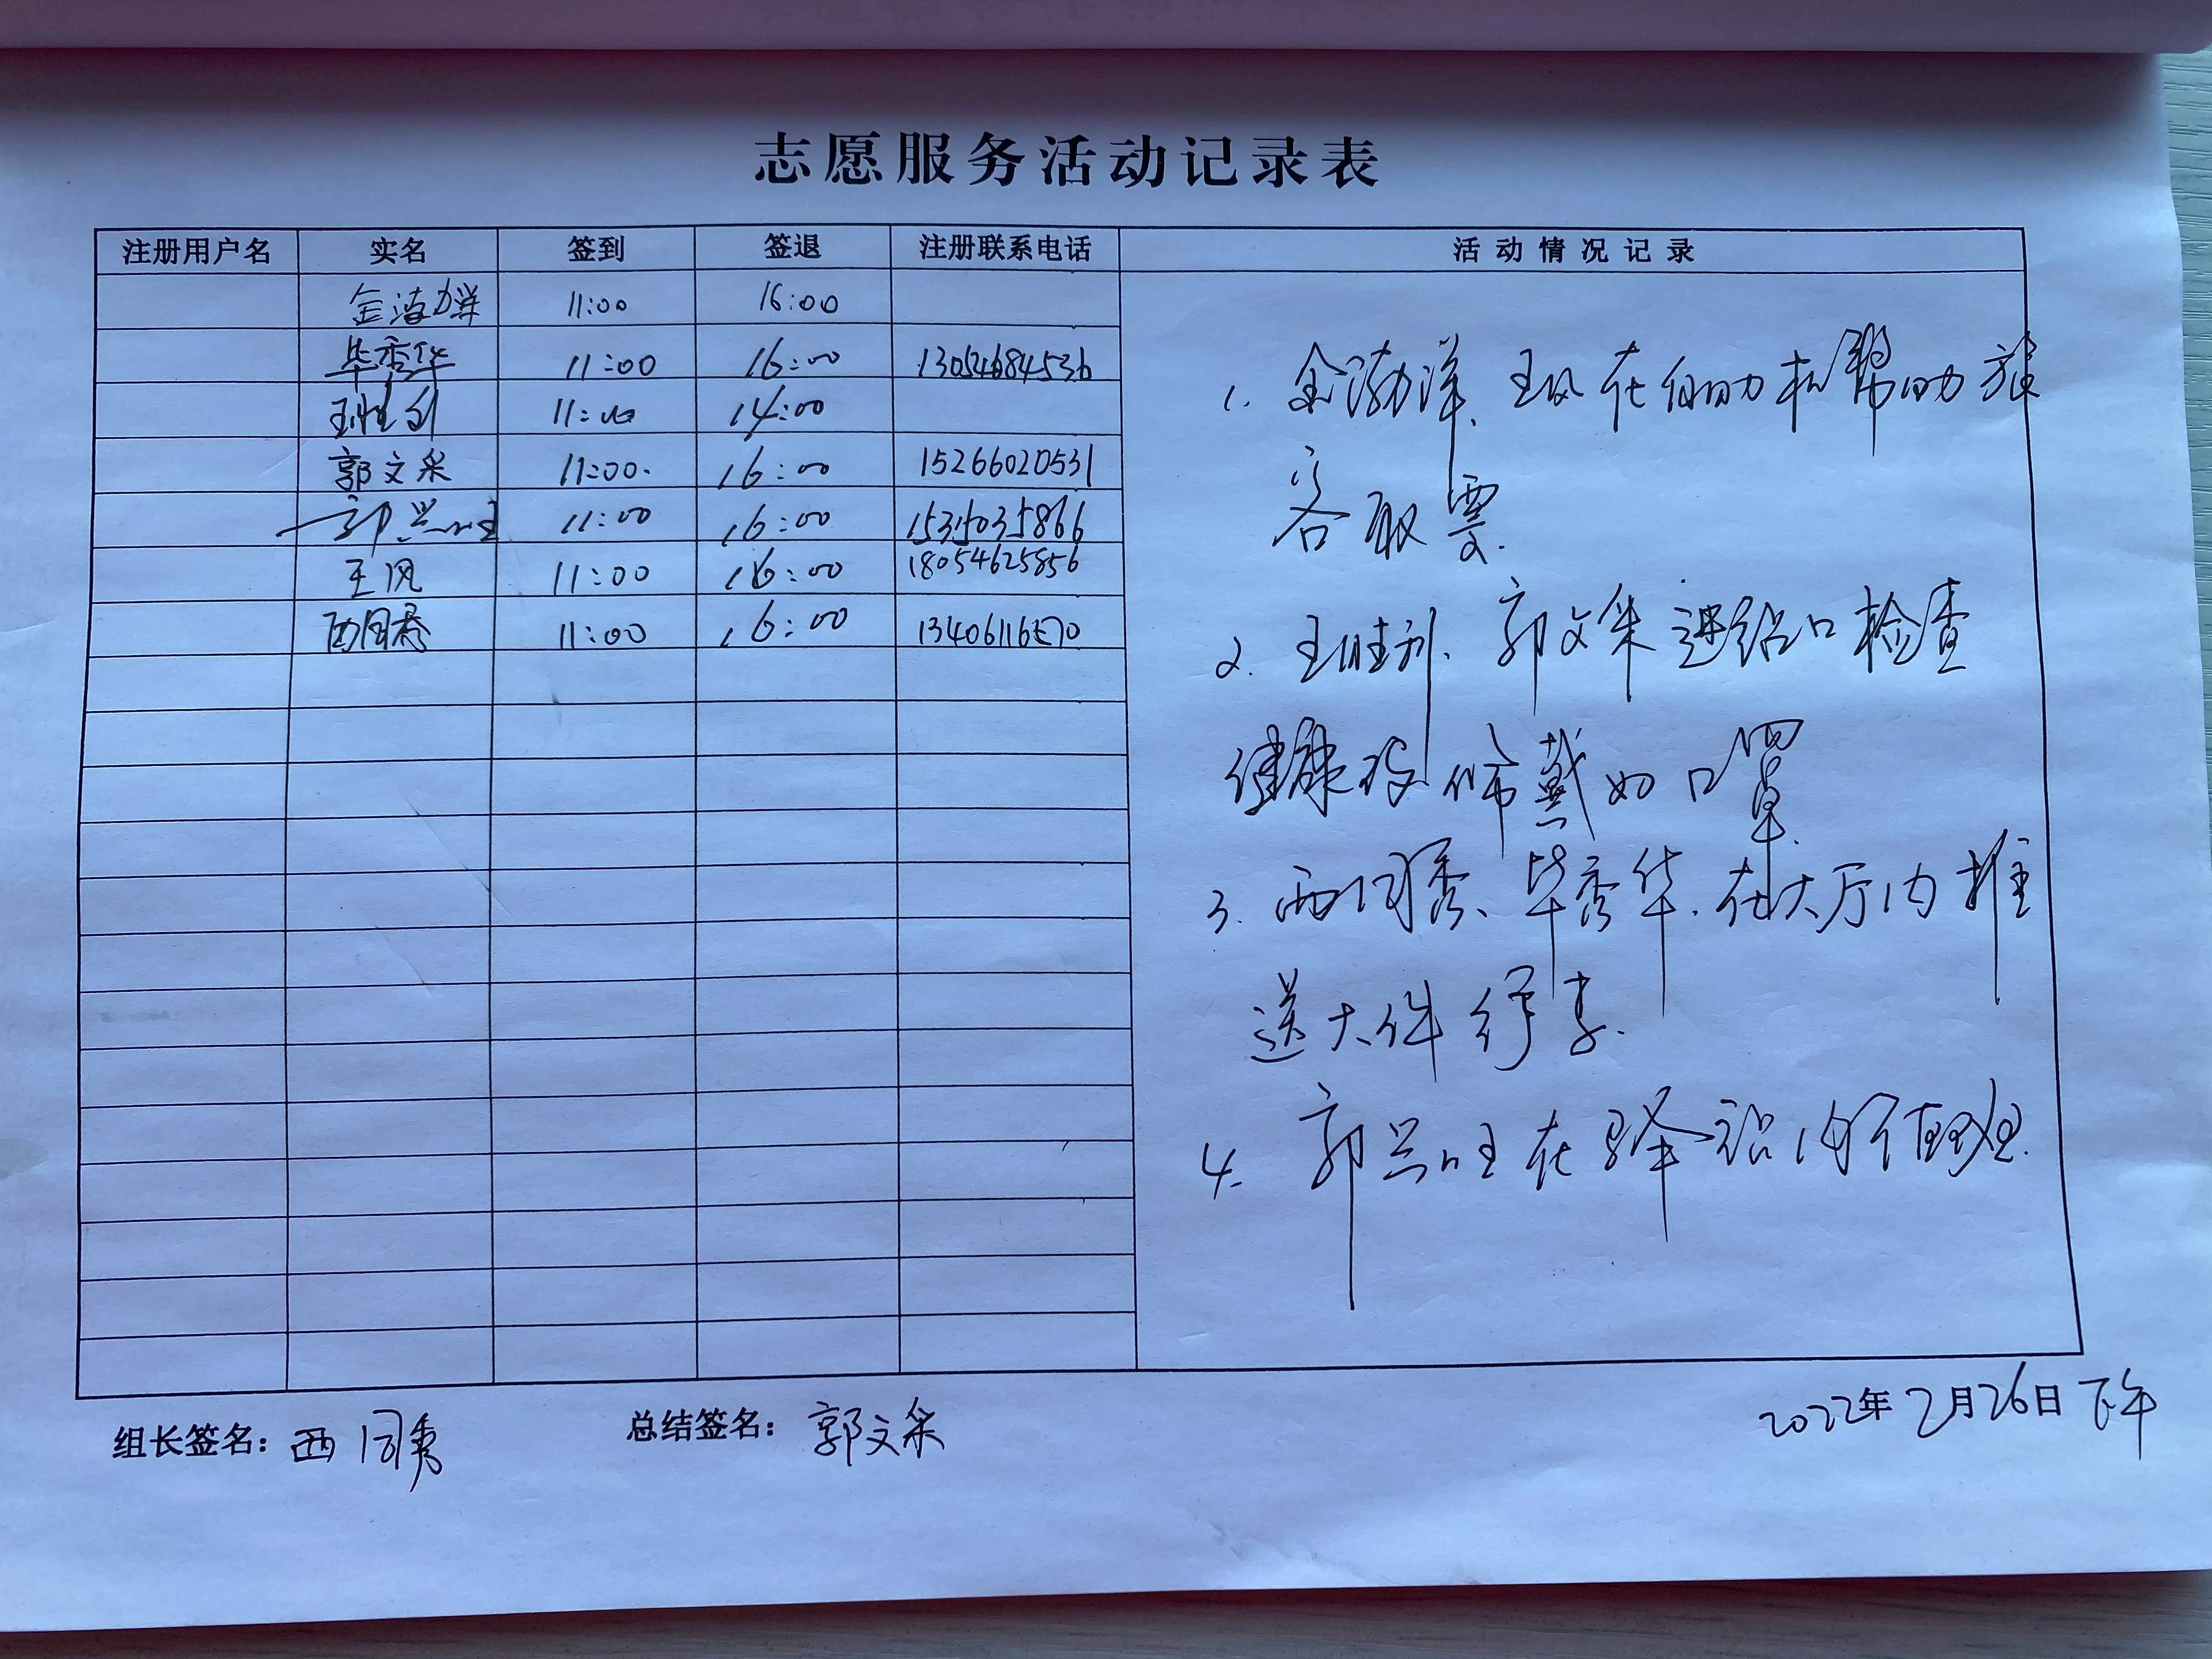 志愿服务活动记录表
注册用户名 实名 签到 签退 注册联系电话 活动情况记录
金渤洋 11:00 16:00
毕秀华 11:00 16:00 13054684536
王胜利 11:00 14:00
郭文采 11:00. 16:00 15266020531
郭兴旺 11:00 16:00 15315035866
王风 11:00 16:00 18054625856
西同秀 11:00 16:00
1. 金渤洋、王风在自助机帮助旅
客取票.
2. 王胜利、郭文采进站口检查
健康码 戴好口罩.
3. 西同秀、毕秀华.在大厅内推
送大件行李.
4. 郭兴旺在驿站内值班.
组长签名：西同秀 总结签名：郭文采 2022年2月26日下午